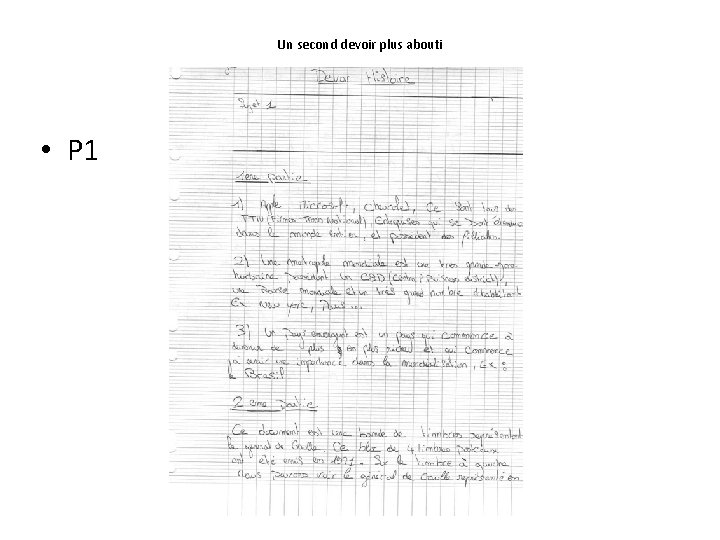 Un second devoir plus abouti
• P1
Devoir Histoire
Sujet 1
1ere partie
1) Apple Microsoft, Chevrolet, Ce sont tous des
FTN (Firmes Trans National) Entreprises qui se sont
dans le monde entier, et possedent des filliales.
2) Une metropole mondiale est une tres grande
hurbaine possedant un CBD (Central Business district),
une Bourse mondiale et un très grand nombre d'habitant
Ex New york, Paris...
3) Un pays emergent est un pays qui commence à
devenir de plus en plus riche et qui Commence
à avoir une importance dans la mondialisation, Ex :
le Brasil
2eme partie
Ce document est une bande de timbres représentant
le general de Gaulle. Ce bloc de 4 timbres postaux
ont été emis en 1971. Sur le timbre à gauche
nous pouvons voir le général de Gaulle représenté en